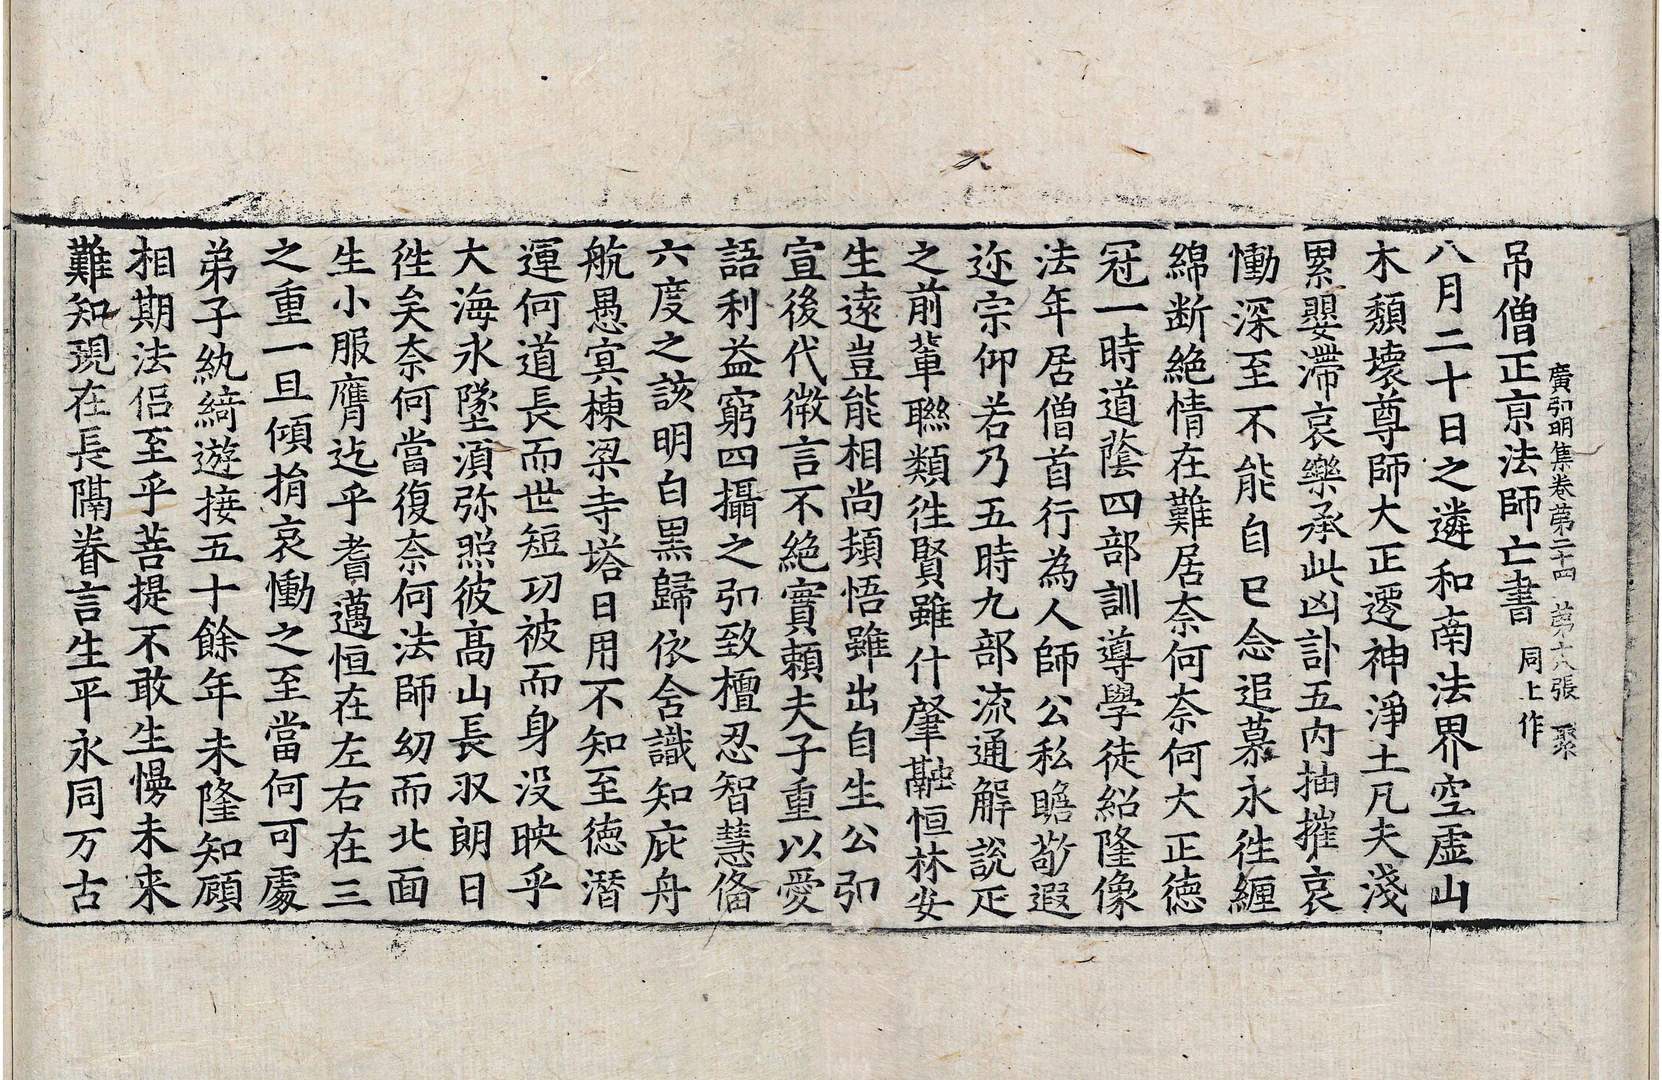 廣弘明集卷第二十四 第十八張 聚
吊僧正京法師亡書 同上作
八月二十日之遴和南法界空虛山
木頹壞尊師大正遷神淨土凡夫淺
累嬰滯哀樂承此凶訃五內抽摧哀
慟深至不能自已念追慕永徃纏
綿斷絕情在難居奈何奈何大正德
冠一時道蔭四部訓導學徒紹隆像
法年居僧首行為人師公私瞻敬遐
迩宗仰若乃五時九部流通解說疋
之前輩聯類徃賢雖什肇融恒林安
生遠豈能相尚頓悟雖出自生公弘
宣後代微言不絕實賴夫子重以愛
語利益窮四攝之弘致檀忍智慧備
六度之該明白黑歸依含識知庇舟
航愚冥棟梁寺塔日用不知至德潛
運何道長而世短功被而身没映乎
大海永墜湏弥照彼高山長収朗日
徃矣奈何當復奈何法師幼而北面
生小服膺迄乎耆邁恒在左右在三
之重一旦傾捐哀慟之至當何可處
弟子紈綺遊接五十餘年未隆知顧
相期法侣至乎菩提不敢生慢未来
難知現在長隔眷言生平永同万古